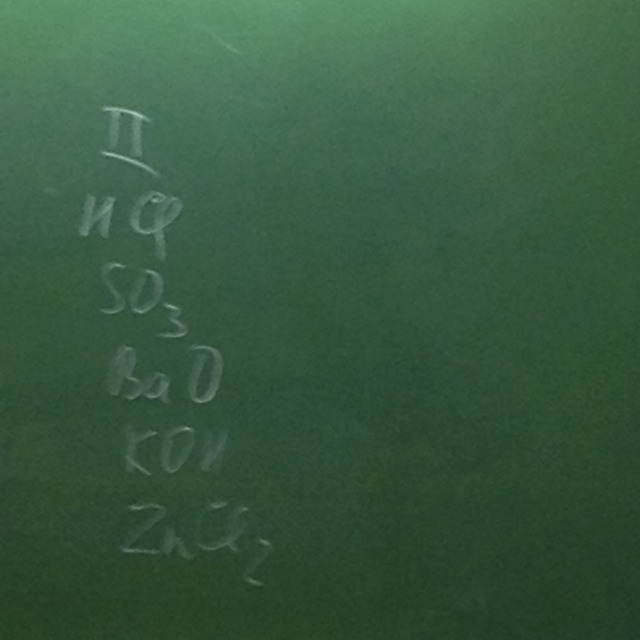 II
HCl
SO3
BaO
KOH
ZnCl2